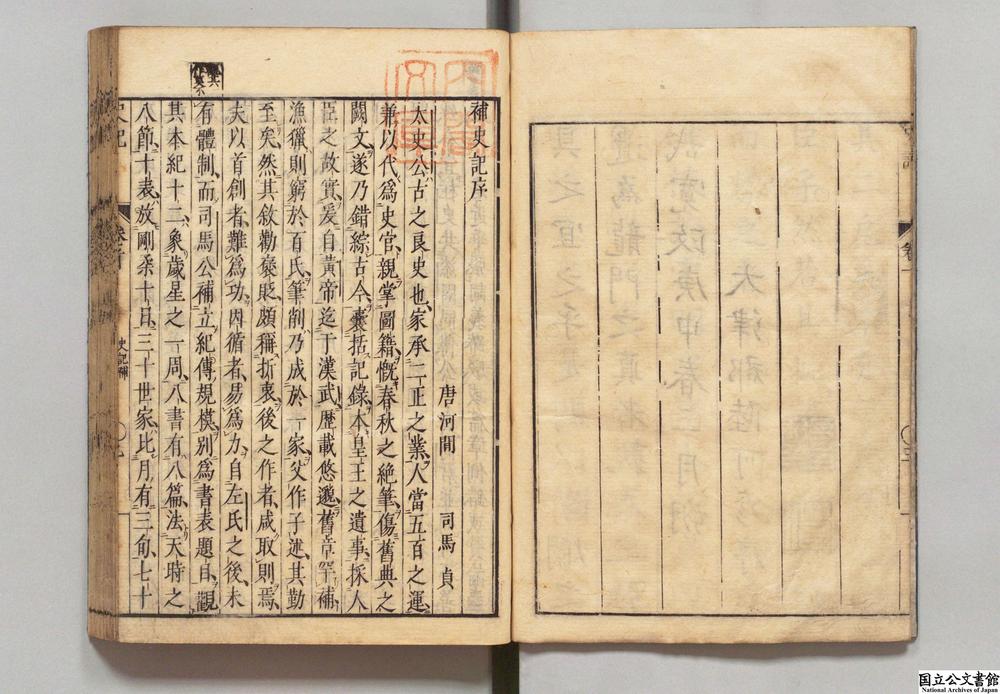 補史記序
唐河間　司馬貞
太史公古之良史也家承二正之業人當五百之運
兼以代爲史官親掌圖籍慨春秋之絶筆傷舊典之
闕文遂乃錯綜古今囊括記錄本皇王之遺事採人
臣之故實爰自黃帝迄于漢武歷載悠邈舊章罕補
漁獵則窮於百氏筆削乃成於一家父作子述其勤
至矣然其敘勸褒貶頗稱折衷後之作者咸取則焉
夫以首創者難爲功因循者易爲力自左氏之後未
有體制而司馬公補立紀傳規模別爲書表題目觀
其本紀十二象歲星之一周八書有八篇法天時之
八節十表放剛柔十日三十世家比月有三旬七十
史記補
国立公文書館
National Archives of Japan